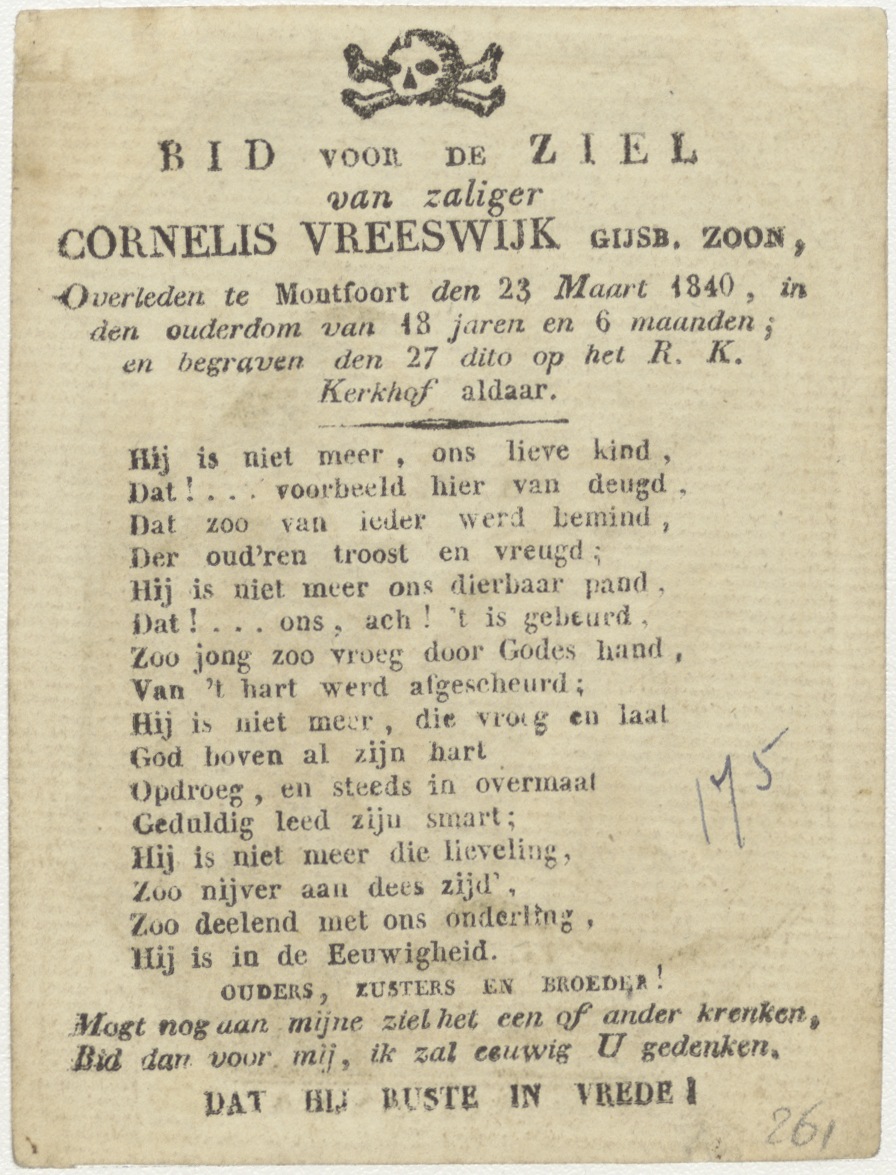 BID VOOR DE ZIEL
van zaliger
CORNELIS VREESWIJK GIJSB. ZOON,
Overleden te Montfoort den 23 Maart 1840, in
den ouderdom van 18 jaren en 6 maanden;
en begraven den 27 dito op het R. K.
Kerkhof aldaar.
Hij is niet meer, ons lieve kind,
Dat!... voorbeeld hier van deugd,
Dat zoo van ieder werd bemind,
Der oud'ren troost en vreugd;
Hij is niet meer ons dierbaar pand,
Dat!... ons, ach! 't is gebeurd,
Zoo jong zoo vroeg door Godes hand,
Van 't hart werd afgescheurd;
Hij is niet meer, die vroeg en laat
God boven al zijn hart
Opdroeg, en steeds in overmaat
Geduldig leed zijn smart;
Hij is niet meer die lieveling,
Zoo nijver aan dees zijd',
Zoo deelend met ons onderling,
Hij is in de Eeuwigheid.
OUDERS, ZUSTERS EN BROEDER!
Mogt nog aan mijne ziel het een of ander krenken,
Bid dan voor mij, ik zal eeuwig U gedenken.
DAT HIJ RUSTE IN VREDE!
175
261